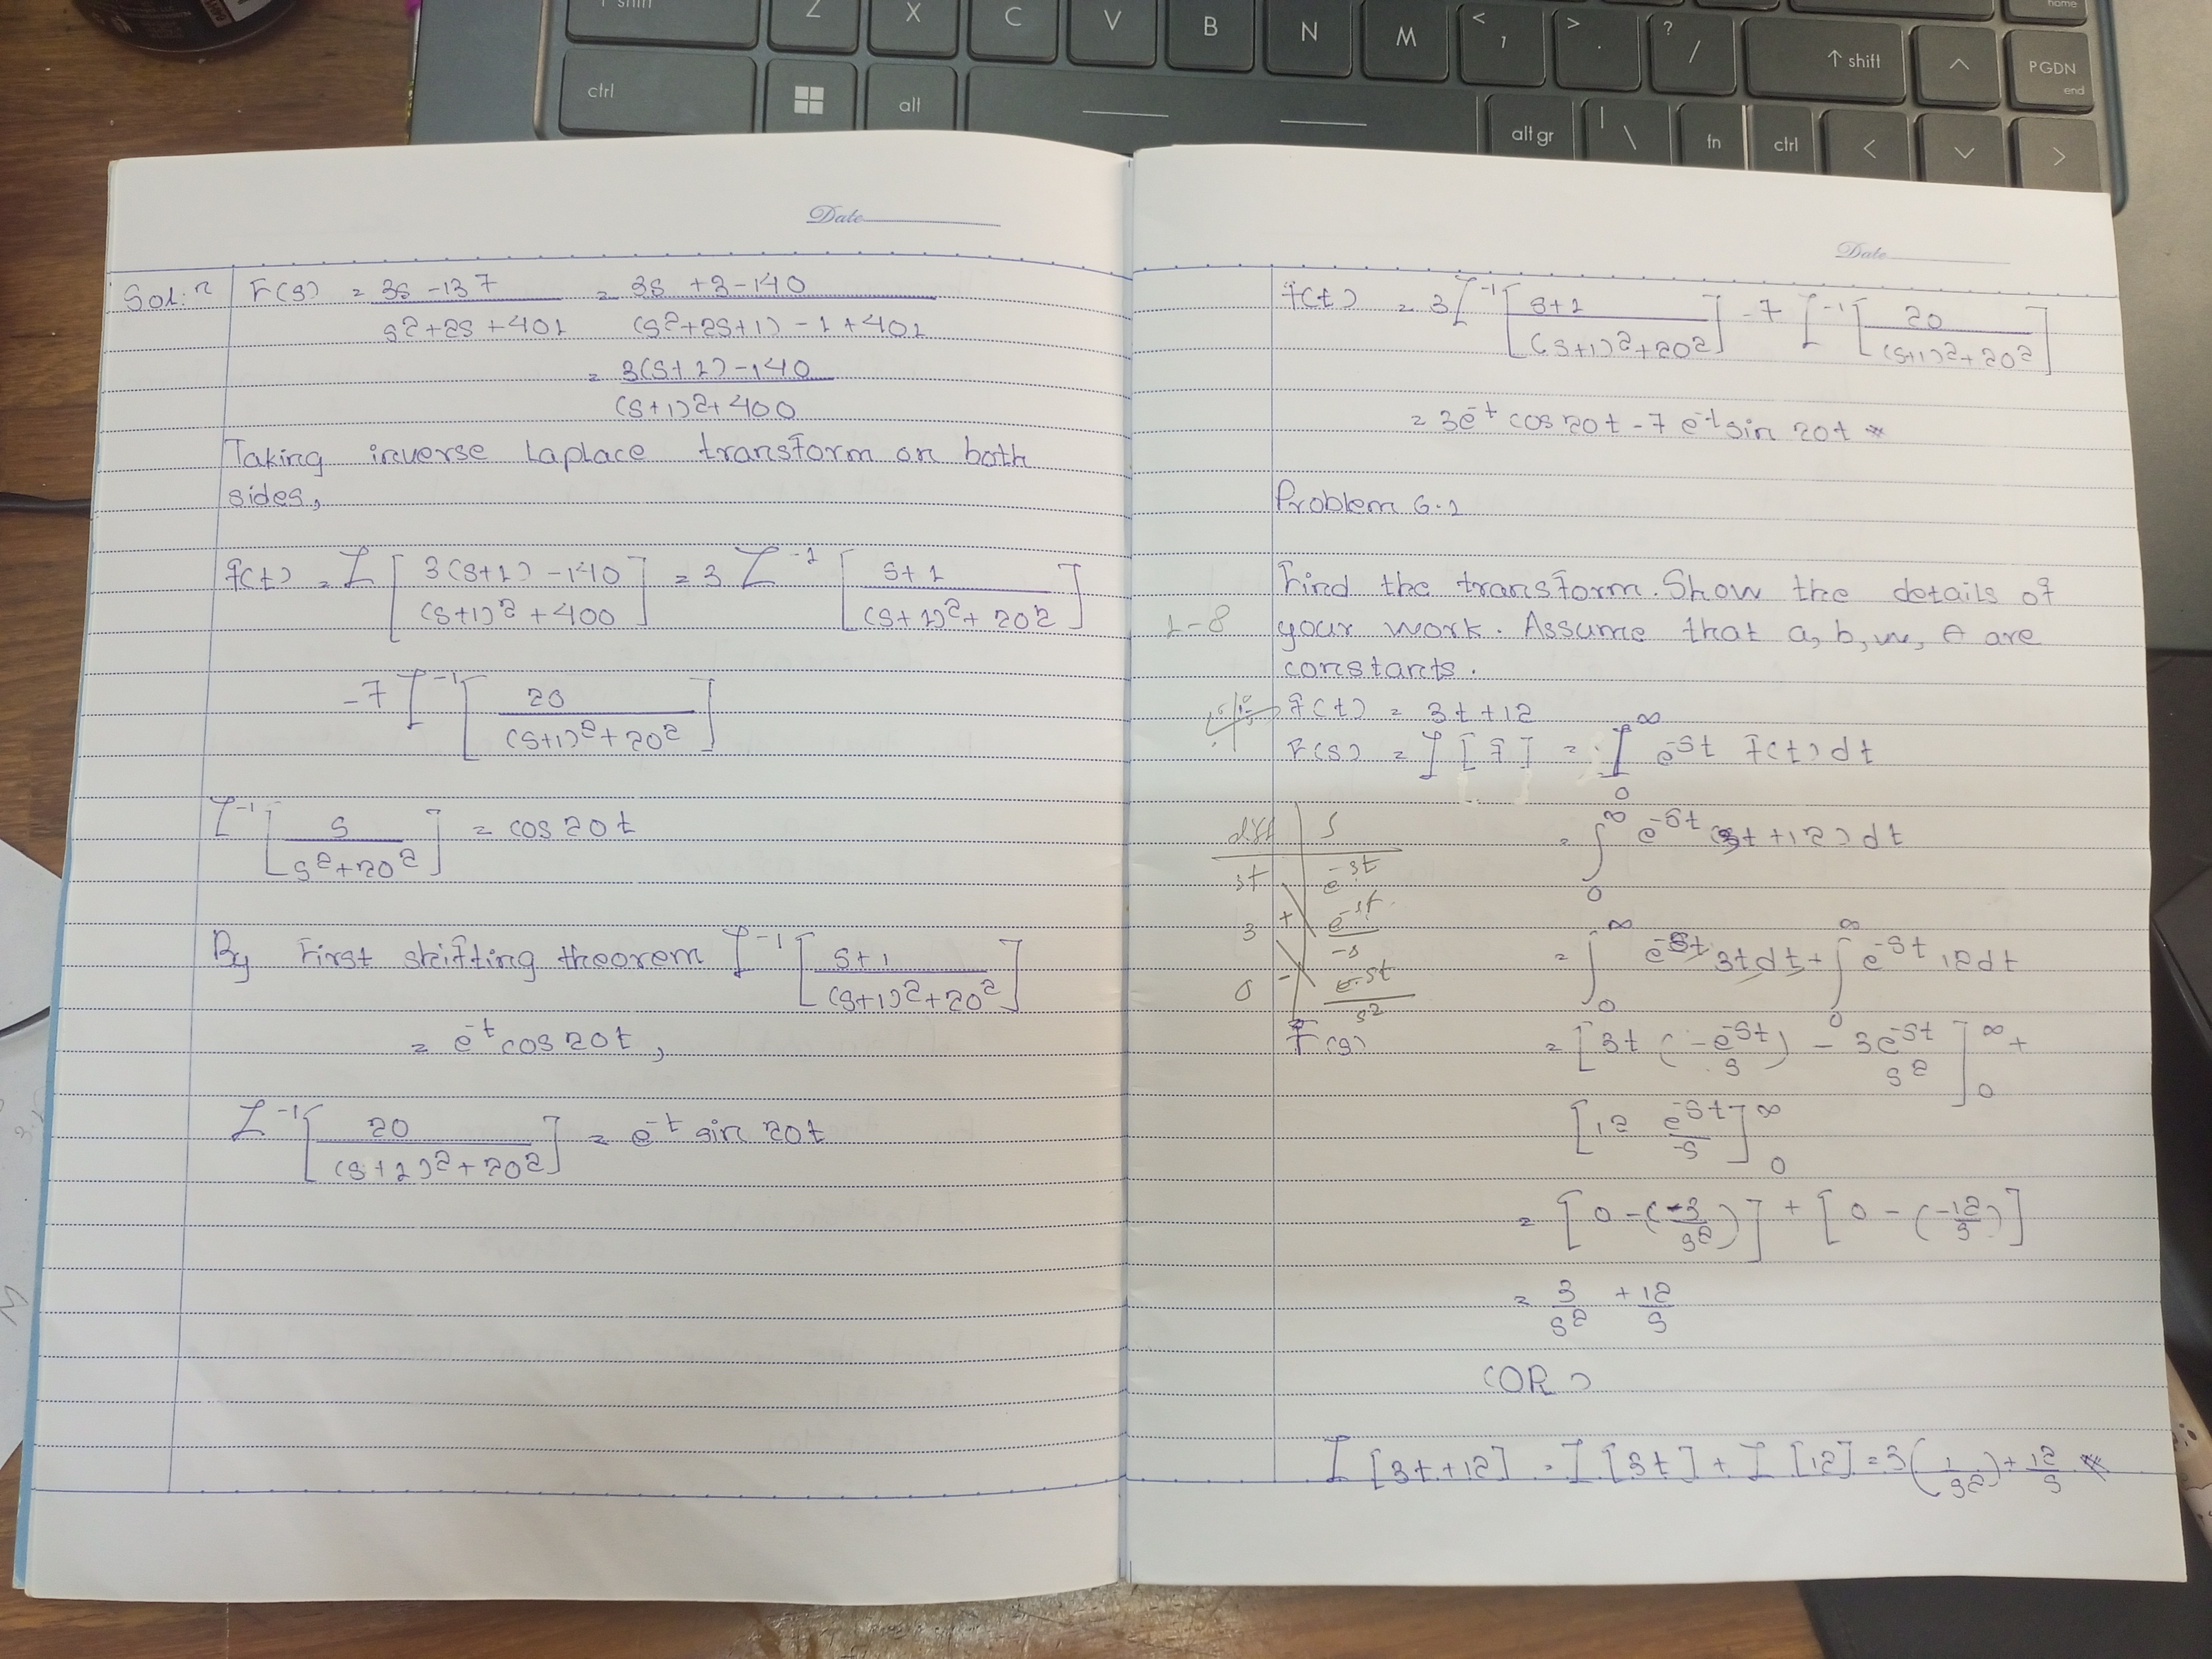 shift
Z X C V B N M < , > . ? / ↑ shift PGDN end home
ctrl alt alt gr | \ fn ctrl
Date
Sol:n F(s) = 3s - 137 / s² + 2s + 401 = 3s + 3 - 140 / (s² + 2s + 1) - 1 + 401
= 3(s+1) - 140 / (s+1)² + 400
Taking inverse Laplace transform on both
sides,
f(t) = L [ 3(s+1) - 140 / (s+1)² + 400 ] = 3 L⁻¹ [ s+1 / (s+1)² + 20² ]
-7 L⁻¹ [ 20 / (s+1)² + 20² ]
L⁻¹ [ s / s² + 20² ] = cos 20t
By First shifting theorem L⁻¹ [ s+1 / (s+1)² + 20² ]
= e⁻ᵗ cos 20t,
L⁻¹ [ 20 / (s+1)² + 20² ] = e⁻ᵗ sin 20t
Date
f(t) = 3 L⁻¹ [ s+1 / (s+1)² + 20² ] - 7 L⁻¹ [ 20 / (s+1)² + 20² ]
= 3e⁻ᵗ cos 20t - 7 e⁻ᵗ sin 20t
Problem 6.1
Find the transform. Show the details of
1-8 your work. Assume that a, b, w, θ are
constants.
f(t) = 3t + 12
F(s) = L [f] = ∫₀^∞ e⁻ˢᵗ f(t) dt
= ∫₀^∞ e⁻ˢᵗ (3t + 12) dt
diff ∫
3t e⁻ˢᵗ
3 + e⁻ˢᵗ / -s
0 - e⁻ˢᵗ / s²
= ∫₀^∞ e⁻ˢᵗ 3t dt + ∫₀^∞ e⁻ˢᵗ 12 dt
F(s) = [ 3t ( -e⁻ˢᵗ / s ) - 3e⁻ˢᵗ / s² ]₀^∞ +
[ 12 e⁻ˢᵗ / -s ]₀^∞
= [ 0 - ( -3 / s² ) ] + [ 0 - ( -12 / s ) ]
= 3 / s² + 12 / s
(OR)
L [3t + 12] = L [3t] + L [12] = 3 ( 1 / s² ) + 12 / s